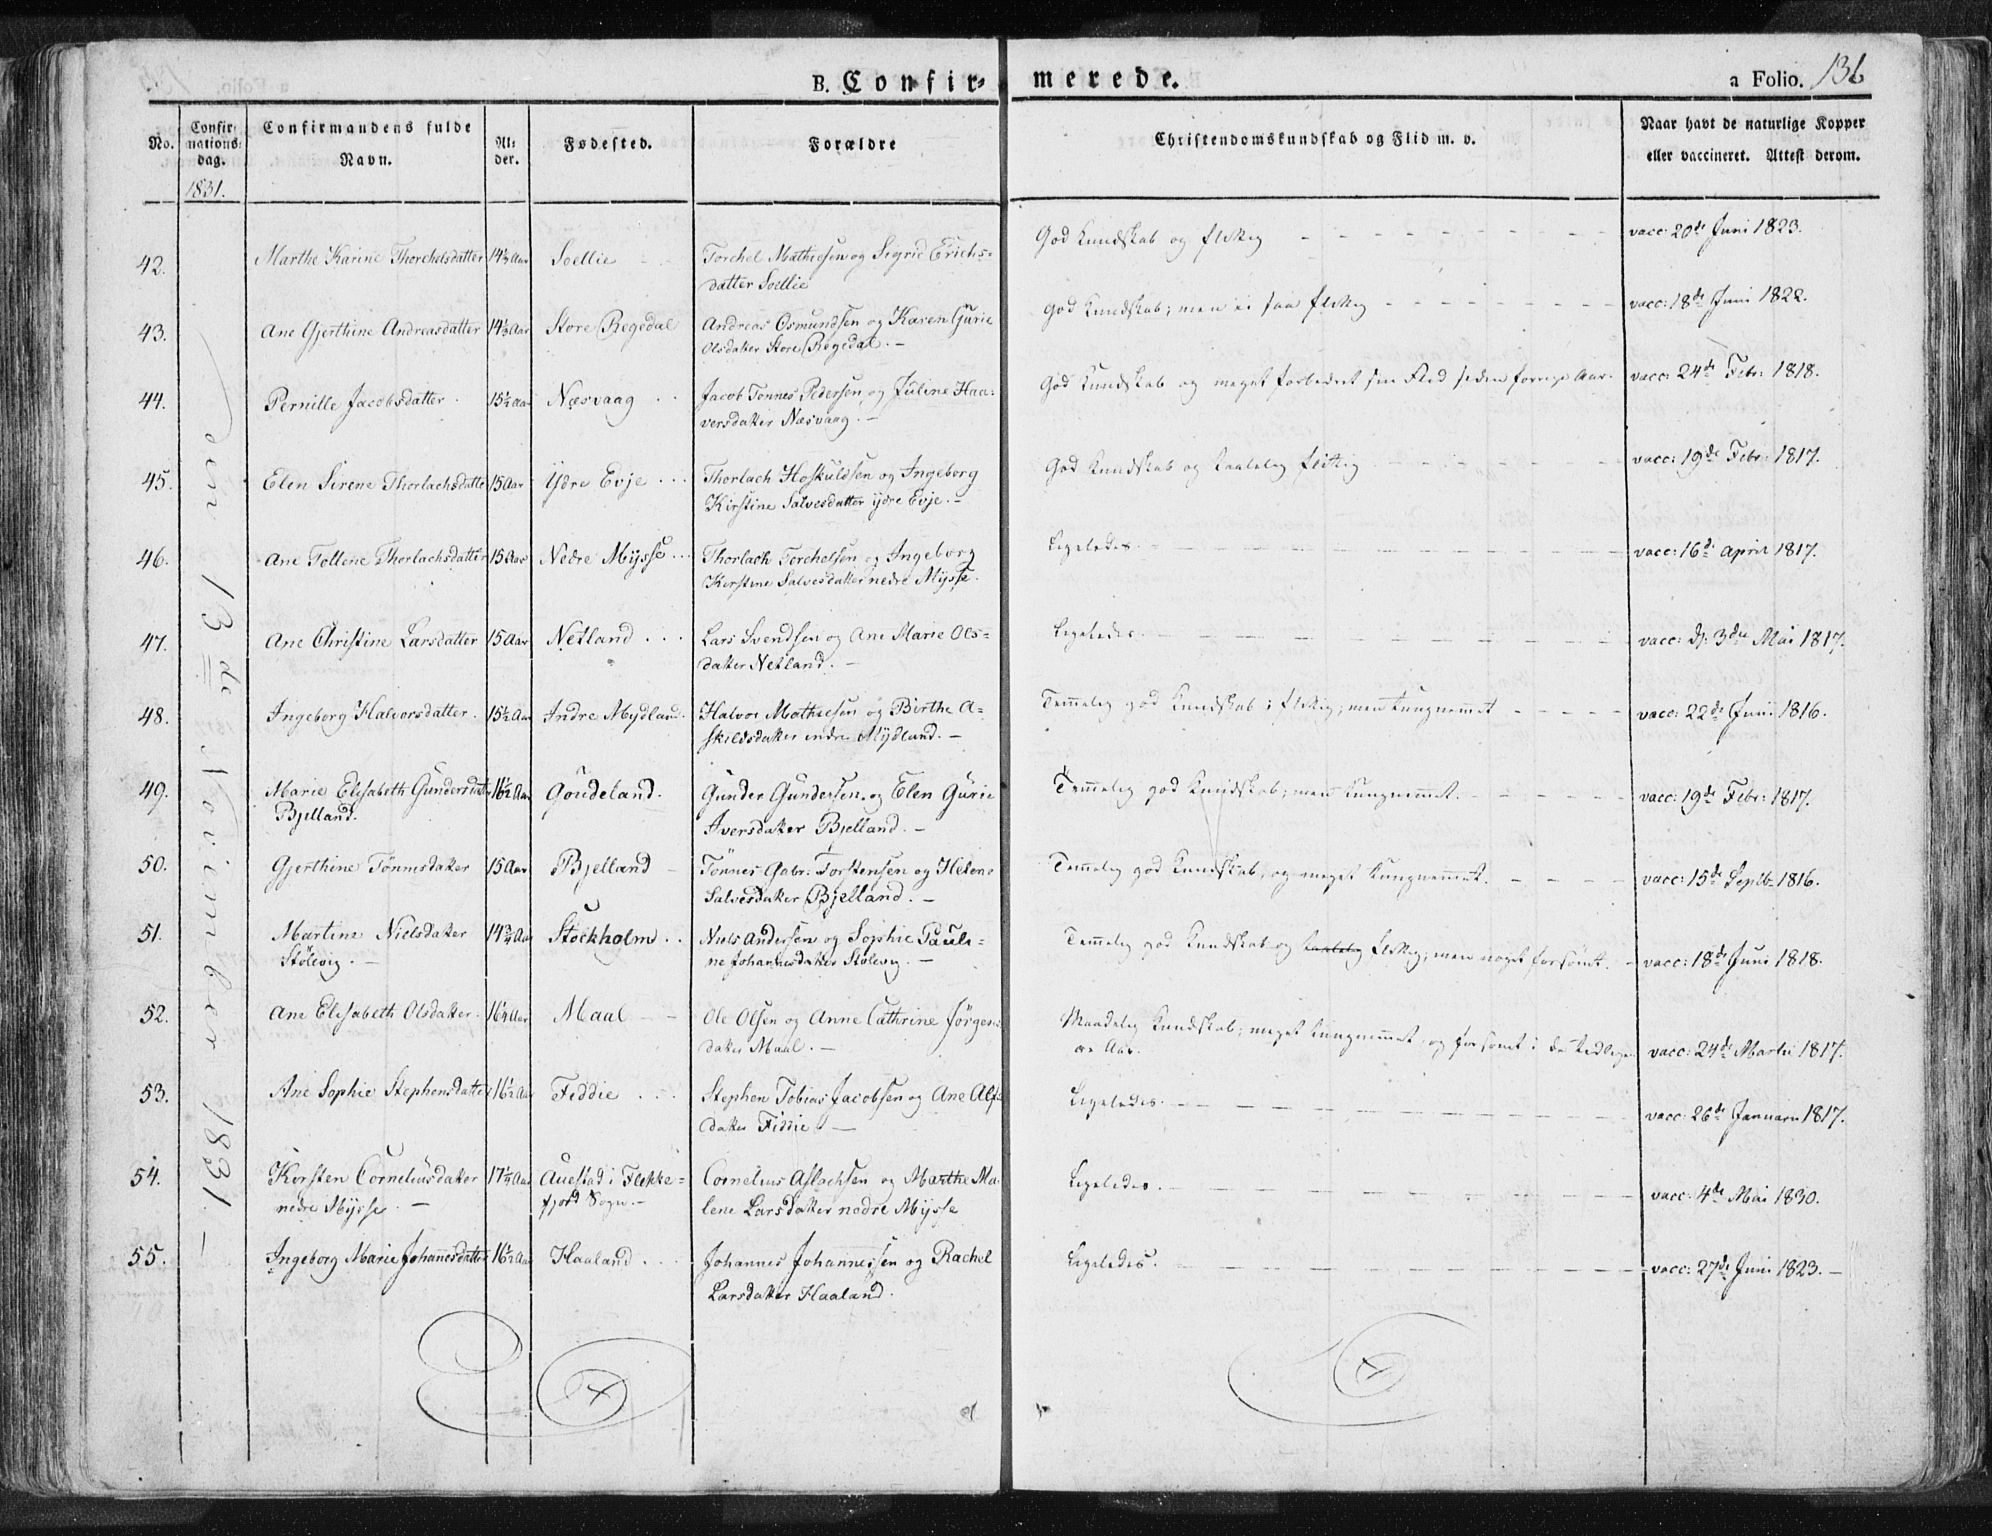 B. Confir- merede. a Folio. 136
No. Confir- mations- dag. Confirmandens fulde Navn. Al- der. Fødested. Forældre Christendomskundskab og Flid m. v. Naar havt de naturlige Kopper eller vaccineret. Attest derom.
1831.
den 13de November 1831. —
42. Marthe Karine Thorchelsdatter 14½ Aar Soellie Torchel Mathiesen og Sigrid Erichs- God Kundskab og flittig vacc: 20de Juni 1823.
datter Soellie
43. Ane Gjerthine Andreasdatter 14½ Aar Store Regedal Andreas Osmundsen og Karen Gurie God Kundskab; men ei saa flittig vacc: 18de Juni 1822.
Olsdatter Store Regedal. —
44. Pernille Jacobsdatter 15½ Aar Næsvaag Jacob Tønnes Pedersen og Juline Haa- God Kundskab og meget forbedret sin Flid siden forrige Aar. vacc: 24de Febr: 1818.
versdatter Næsvaag. —
45. Elen Sirene Thorlachsdatte 15 Aar Ydre Evje Thorlach Hoskuldsen og Ingeborg God Kundskab og taalelig flittig vacc: 19de Febr: 1817.
Kirstine Salvesdatter ydre Evje. —
46. Ane Tollene Thorlachsdatter 15 Aar Nedre Mysse Thorlach Torchelsen og Ingeborg Ligeledes. vacc: 16de April 1817.
Kirstine Salvesdatter nedre Mysse.
47. Ane Christine Larsdatter 15 Aar Netland Lars Svendsen og Ane Marie Ols- Ligeledes. vacc: d: 3die Mai 1817.
datter Netland. —
48. Ingeborg Halvorsdatter. 15½ Aar Indre Mydland. Halvor Mathiesen og Birthe A- Temmelig god Kundskab; flittig; men tungnemmet vacc: 22de Juni 1816.
skildsdatter indre Mydland. —
49. Marie Elisabeth Gundersdatter 16½ Aar Goudeland. Gunder Gundersen og Elen Gurie Temmelig god Kundskab; men tungnemmet. vacc: 19de Febr: 1817.
Bjelland. Iversdatter Bjelland. —
50. Gjerthine Tönnisdatter 15 Aar Bjelland Tönnes Gabr: Torstensen og Helene Temmelig god Kundskab, og meget tungnemmet. vacc: 15de Septbr 1816.
Salvesdatter Bjelland. —
51. Martine Nielsdatter 14¾ Aar Stockholm Niels Andersen og Sophie Pauli- Temmelig god Kundskab og taalelig flittig; men noget forsömt. vacc: 18de Juni 1818.
Stölevig. — ne Johannesdatter Stölevig. —
52. Ane Elisabeth Olsdatter. 16¼ Aar Maal Ole Olsen og Anne Cathrine Jörgens- Maadelig Kundskab; meget tungnemmet, og forsömt i de tidlige- vacc: 24de Martii 1817.
datter Maal. — re Aar.
53. Ane Sophie Stephensdatter 16½ Aar Fiddie Stephen Tobias Jacobsen og Ane Alf- Ligeledes. vacc: 26de Januari 1817.
datter Fiddie. —
54. Kirsten Corneliusdatter 17¼ Aar Auestad i Flekke- Cornelius Aslachsen og Marthe Ma- Ligeledes. vacc: 4de Mai 1830.
nedre Mysse. — fjord Sogn. — lene Larsdatter nedre Mysse
55. Ingeborg Marie Johannesdatter 16½ Aar Haaland Johannes Johannessen og Rachel Ligeledes. vacc: 27de Juni 1823. —
Larsdatter Haaland.